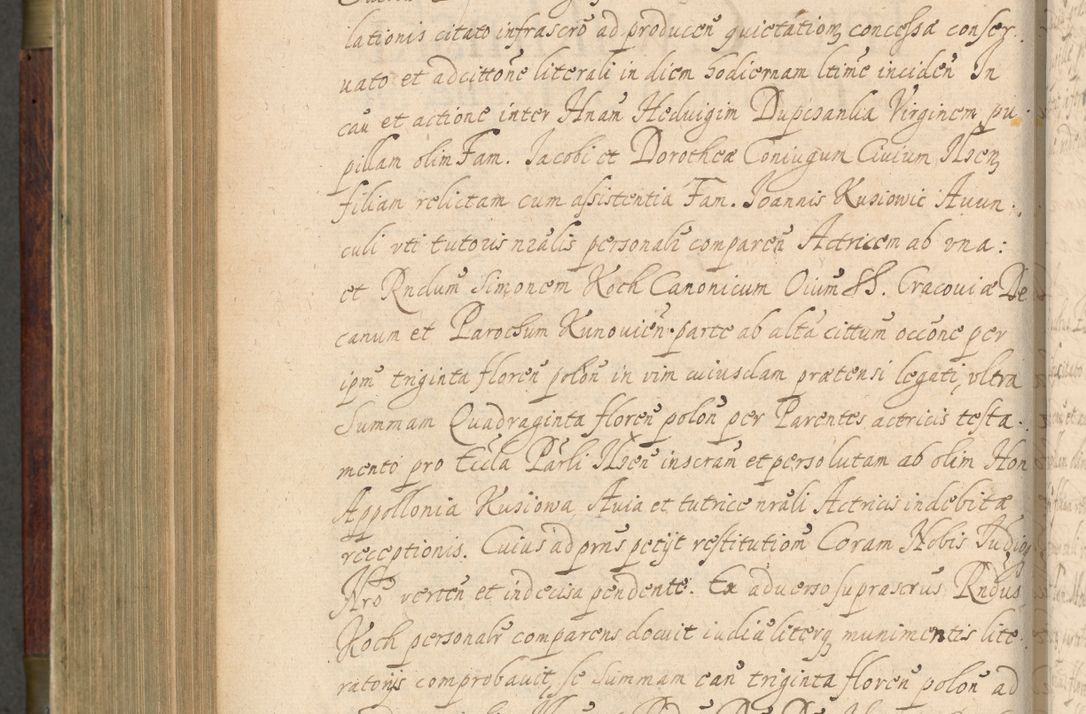 lationis citato infrascrō ad producen̄ quietationē concessæ conser
uato et adcittone literali in diem hodiernam ltime inciden̄ In
cau et actione inter Hnan̄ Heduigim Dupczanka Virginem pu
pillam olim Fam. Jacobi et Dorotheæ Coniugum Ciuium Ilzen̄
filiam relictam cum assistentia Fam. Joannis Kuziowic Auun
culi vti tutoris nrālis personalr comparen̄ Actricem ab vna:
et Rndum̄ Simonem Koch Canonicum Oium̄ SS. Cracouiæ De
canum et Parochum Kunouien̄ parte ab altā cittum̄ occōne per
ipm̄ triginta floren̄ polon̄ in vim cuiusdam prætensi legati, vltra
Summam Quadraginta floren̄ polon̄ per Parentes actricis testa
mento pro Eccla Parli Ilzen̄ inscram̄ et persolutam ab olim Hon
Appollonia Kuziowa Auia et tutrice nrāli Actricis indebitæ
receptionis. Cuius ad prns petijt restitutiom̄ Coram Nobis Judio
Nrō verten̄ et indecisa pendente. Ex aduerso suprascrus Rndus̄
Koch personalr comparens docuit iudialiterq munimentis lite
ratorijs comprobauit, se summam ean̄ triginta floren̄ polon̄ ad